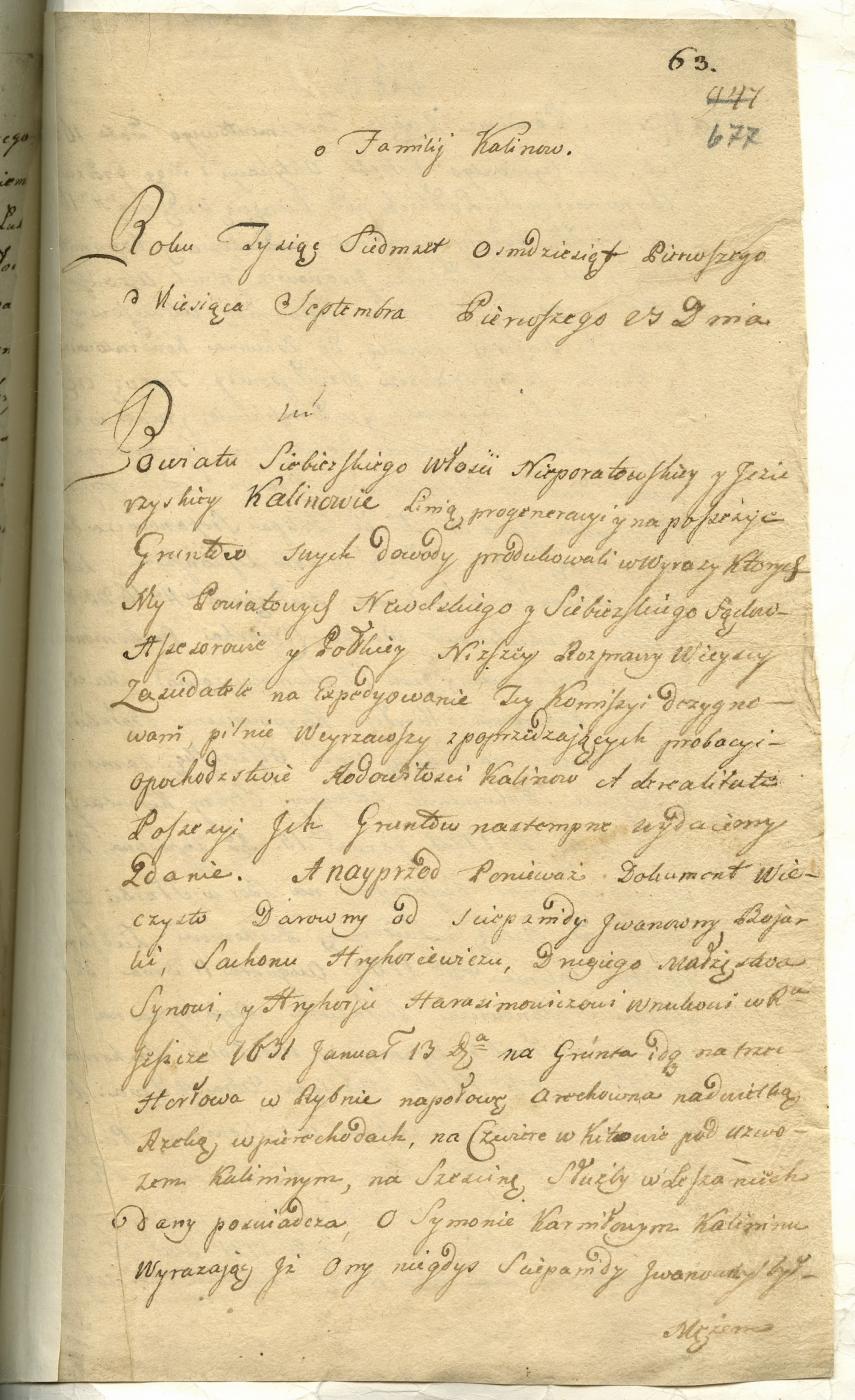 63.
947
677
o Familij Kalinow.
Roku Tysiąc Siedmset Osmdziesiąt Pierwszego
Miesiąca Septembra Pierwszego 23 Dnia
Powiatu Siebiezskiego Włosii Nieporatowskiey y Jezie
rzyskiey Kalinowie Linią progeneracyi y na possessye
Gruntow swych dowody produkowali w Wyrazy Ktorych
My Powiatowych Newelskiego y Siebiezskiego Sądow
Assesorowie y Połłkiey Niższey Rozprawy Wieyscy
Zasidatele na Expedyowanie Tey Komissyi dezygno-
wani pilnie Weyrzawszy z poprzedzających probacyi-
o pochodzstwie Rodowitości Kalinow A de realitate
Possesyi Jch Gruntow nastempne wydaiemy
Zdanie. A nayprzod Ponieważ Dokument Wie-
czysto Darowny od Sciepanidy Jwanowny Bojar
ki, Sachonu Hryhorewiczu, Drugiego Małżęstwa
Synowi, y Hryhorju Harasimowiczowi wnukowi w Ru
Jeszcze 1631 Januar 13 Da na Grunta idą na trzec
Horłowa w Rybnie napołowę Orechowna nad wielką
Rzeką, w pierechodach, na Czwierc w Kitowie pod uzwo-
zem Kalininym, na Szescinę Służby w Leszaniech
Dany poswiadcza, O Symonie Karmiłowym Kalininu
Wyrazając Jż Ony niegdys Sciepanidy Jwanowny był-
Mężem